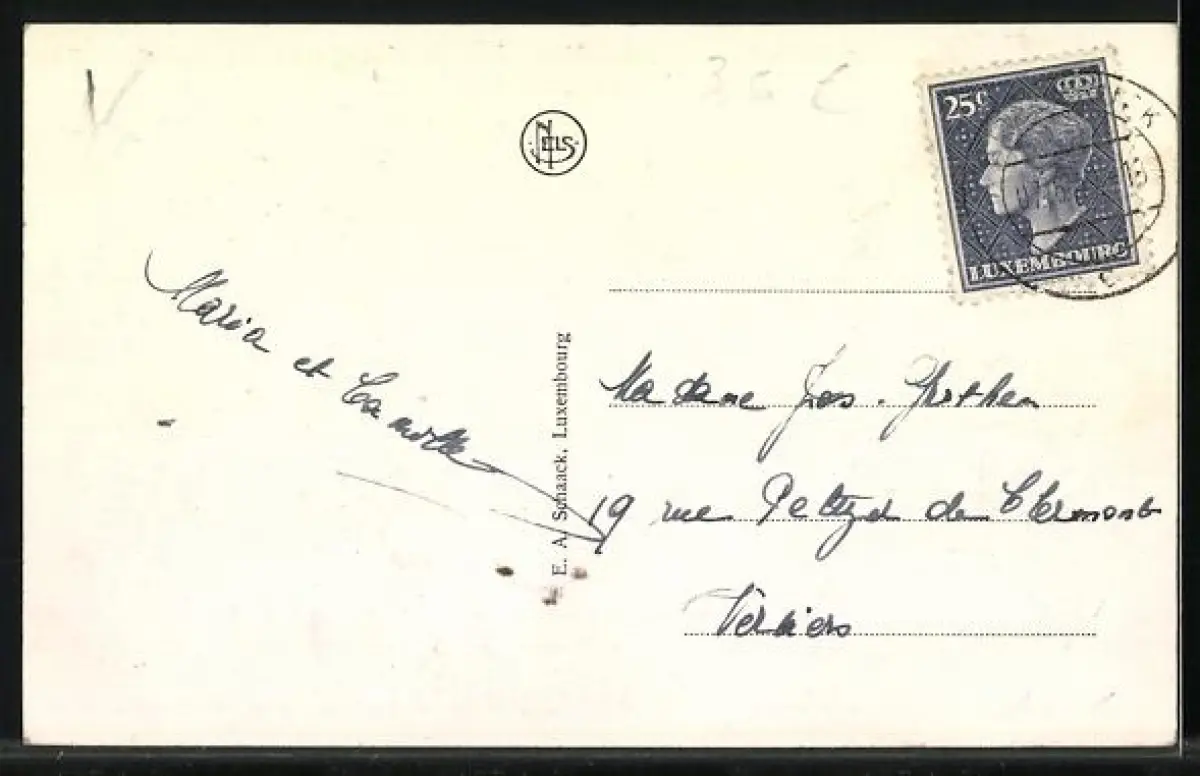 35 c
NELS
25 c
LUXEMBOURG
Maria et Camille
E. A. Schaack, Luxembourg
Madame Jos.
19 rue Peltzer de Clermont
Verviers